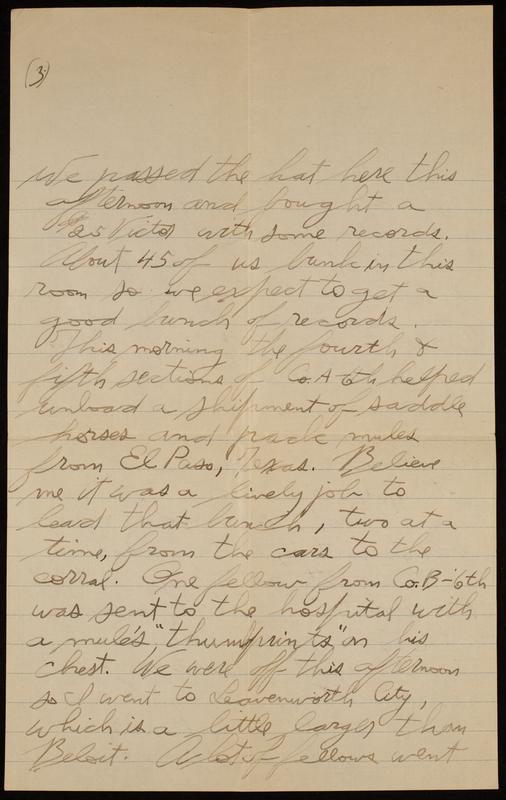 (3)
We passed the hat here this
afternoon and bought a
25 Victor with some records.
About 45 of us bunk in this
room so we expect to get a
good bunch of records.
This morning the fourth &
fifth sections of Co. A 6th helped
unload a shipment of saddle
horses and pack mules
from El Paso, Texas. Believe
me it was a lively job to
lead that bunch, two at a
time, from the cars to the
corral. One fellow from Co. B-6th
was sent to the hospital with
a mule's "thumbprints" on his
chest. We were off this afternoon
so I went to Leavenworth City,
which is a little larger than
Beloit. A lot of fellows went